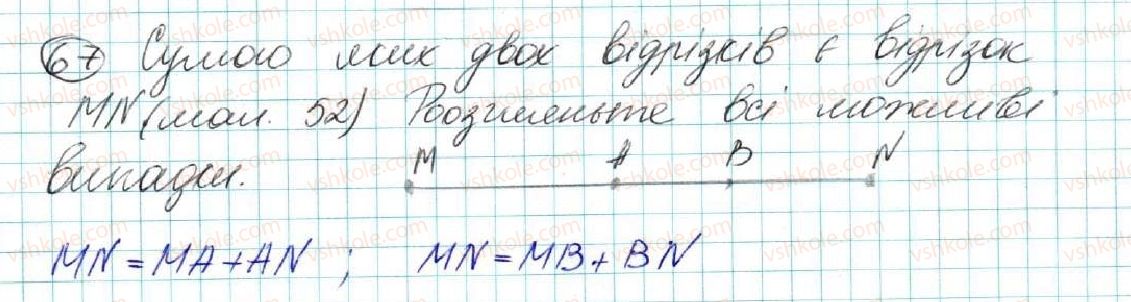 67 Сумою яких двох відрізків є відрізок
MN (мал. 52) Розгляньте всі можливі
випадки.
M A B N
MN = MA + AN ; MN = MB + BN